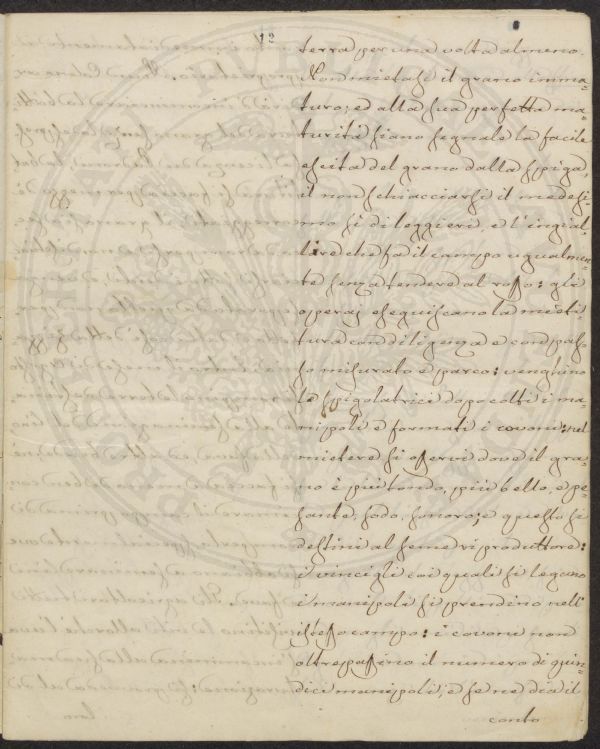 12
terra per una volta almeno.
Non mietasi il grano imma-
turo; ed alla sua perfetta ma-
turità siano segnale la facile
escita del grano dalla spiga,
il non schiacciarsi il medesi-
mo sì di leggieri, e l'ingial-
lire che fa il campo ugualmen-
te senza tendere al rosso: gli
operaj eseguiscano la mieti-
tura con diligenza e con pas-
so misurato e parco: venghino
le spigolatrici dopo colti i ma-
nipoli e formati i covoni: nel
mietere si osservi dove il gra-
no è più tondo, più bello, e pe-
sante, sodo, sonoro; e questo si
destini al seme riproduttore:
i vincigli coi quali si legano
i manipoli si prendino nell'
istesso campo: i covoni non
oltrepassino il numero di quin-
dici manipoli; e se ne dia il
conto